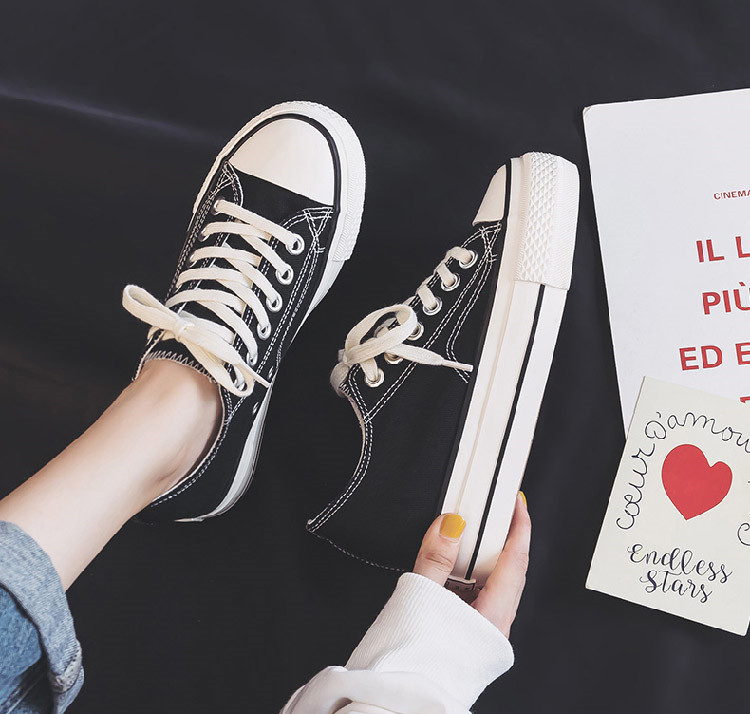 CINEMA
IL L
PIÙ
ED E
cœur d'amour
Endless
Stars